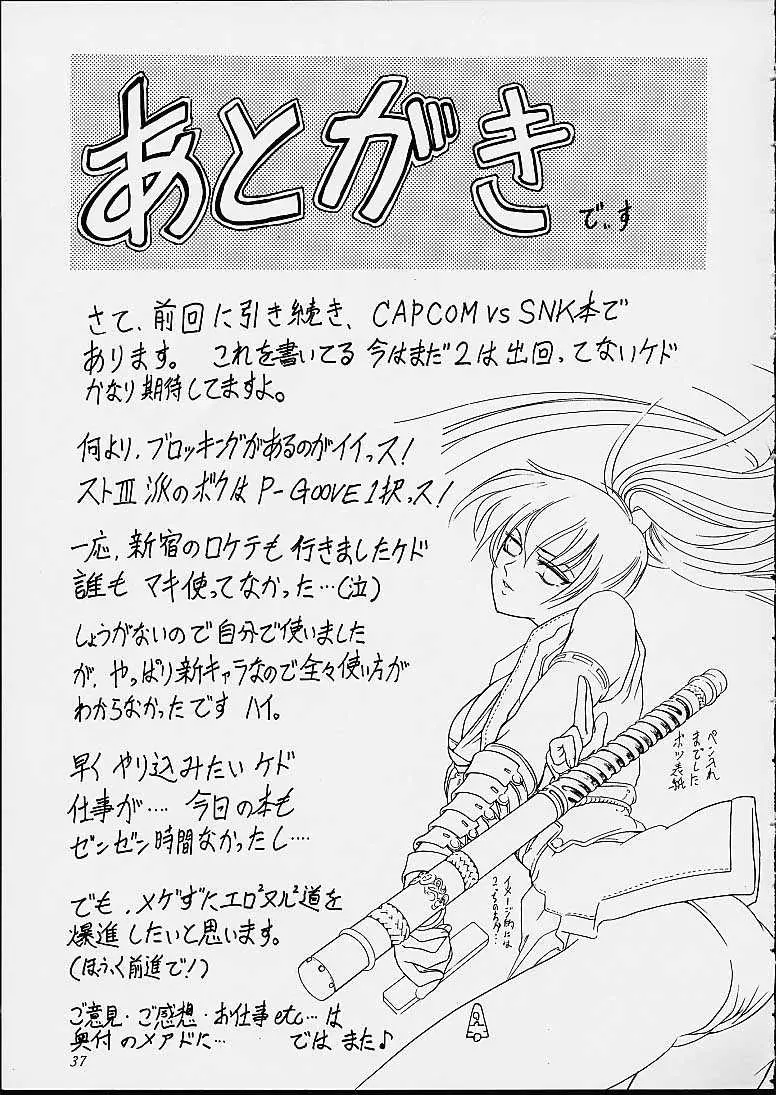 あとがき
でぃす
さて、前回に引き続き、CAPCOM vs SNK本で
あります。 これを書いてる 今はまだ2は出回ってないケド
かなり期待してますよ。
何より、ブロッキングがあるのがイイっス!
ストⅢ派のボクは P-GOOVE 1択っス!
一応、新宿のロケテも行きましたケド
誰も マキ使ってなかった…(泣)
しょうがないので自分で使いました
が、やっぱり新キャラなので全々使い方が
わからなかったです ハイ。
早く やり込みたい ケド
仕事が…. 今日の本も
ゼンゼン時間なかったし….
でも、メゲずにエロ²ヌル²道を
爆進したいと思います。
(ほふく前進で!)
ご意見・ご感想・お仕事etc…は
奥付のメアドに… ではまた♪
ペン入れ
までした
ボツ表紙
イメージ的には
37